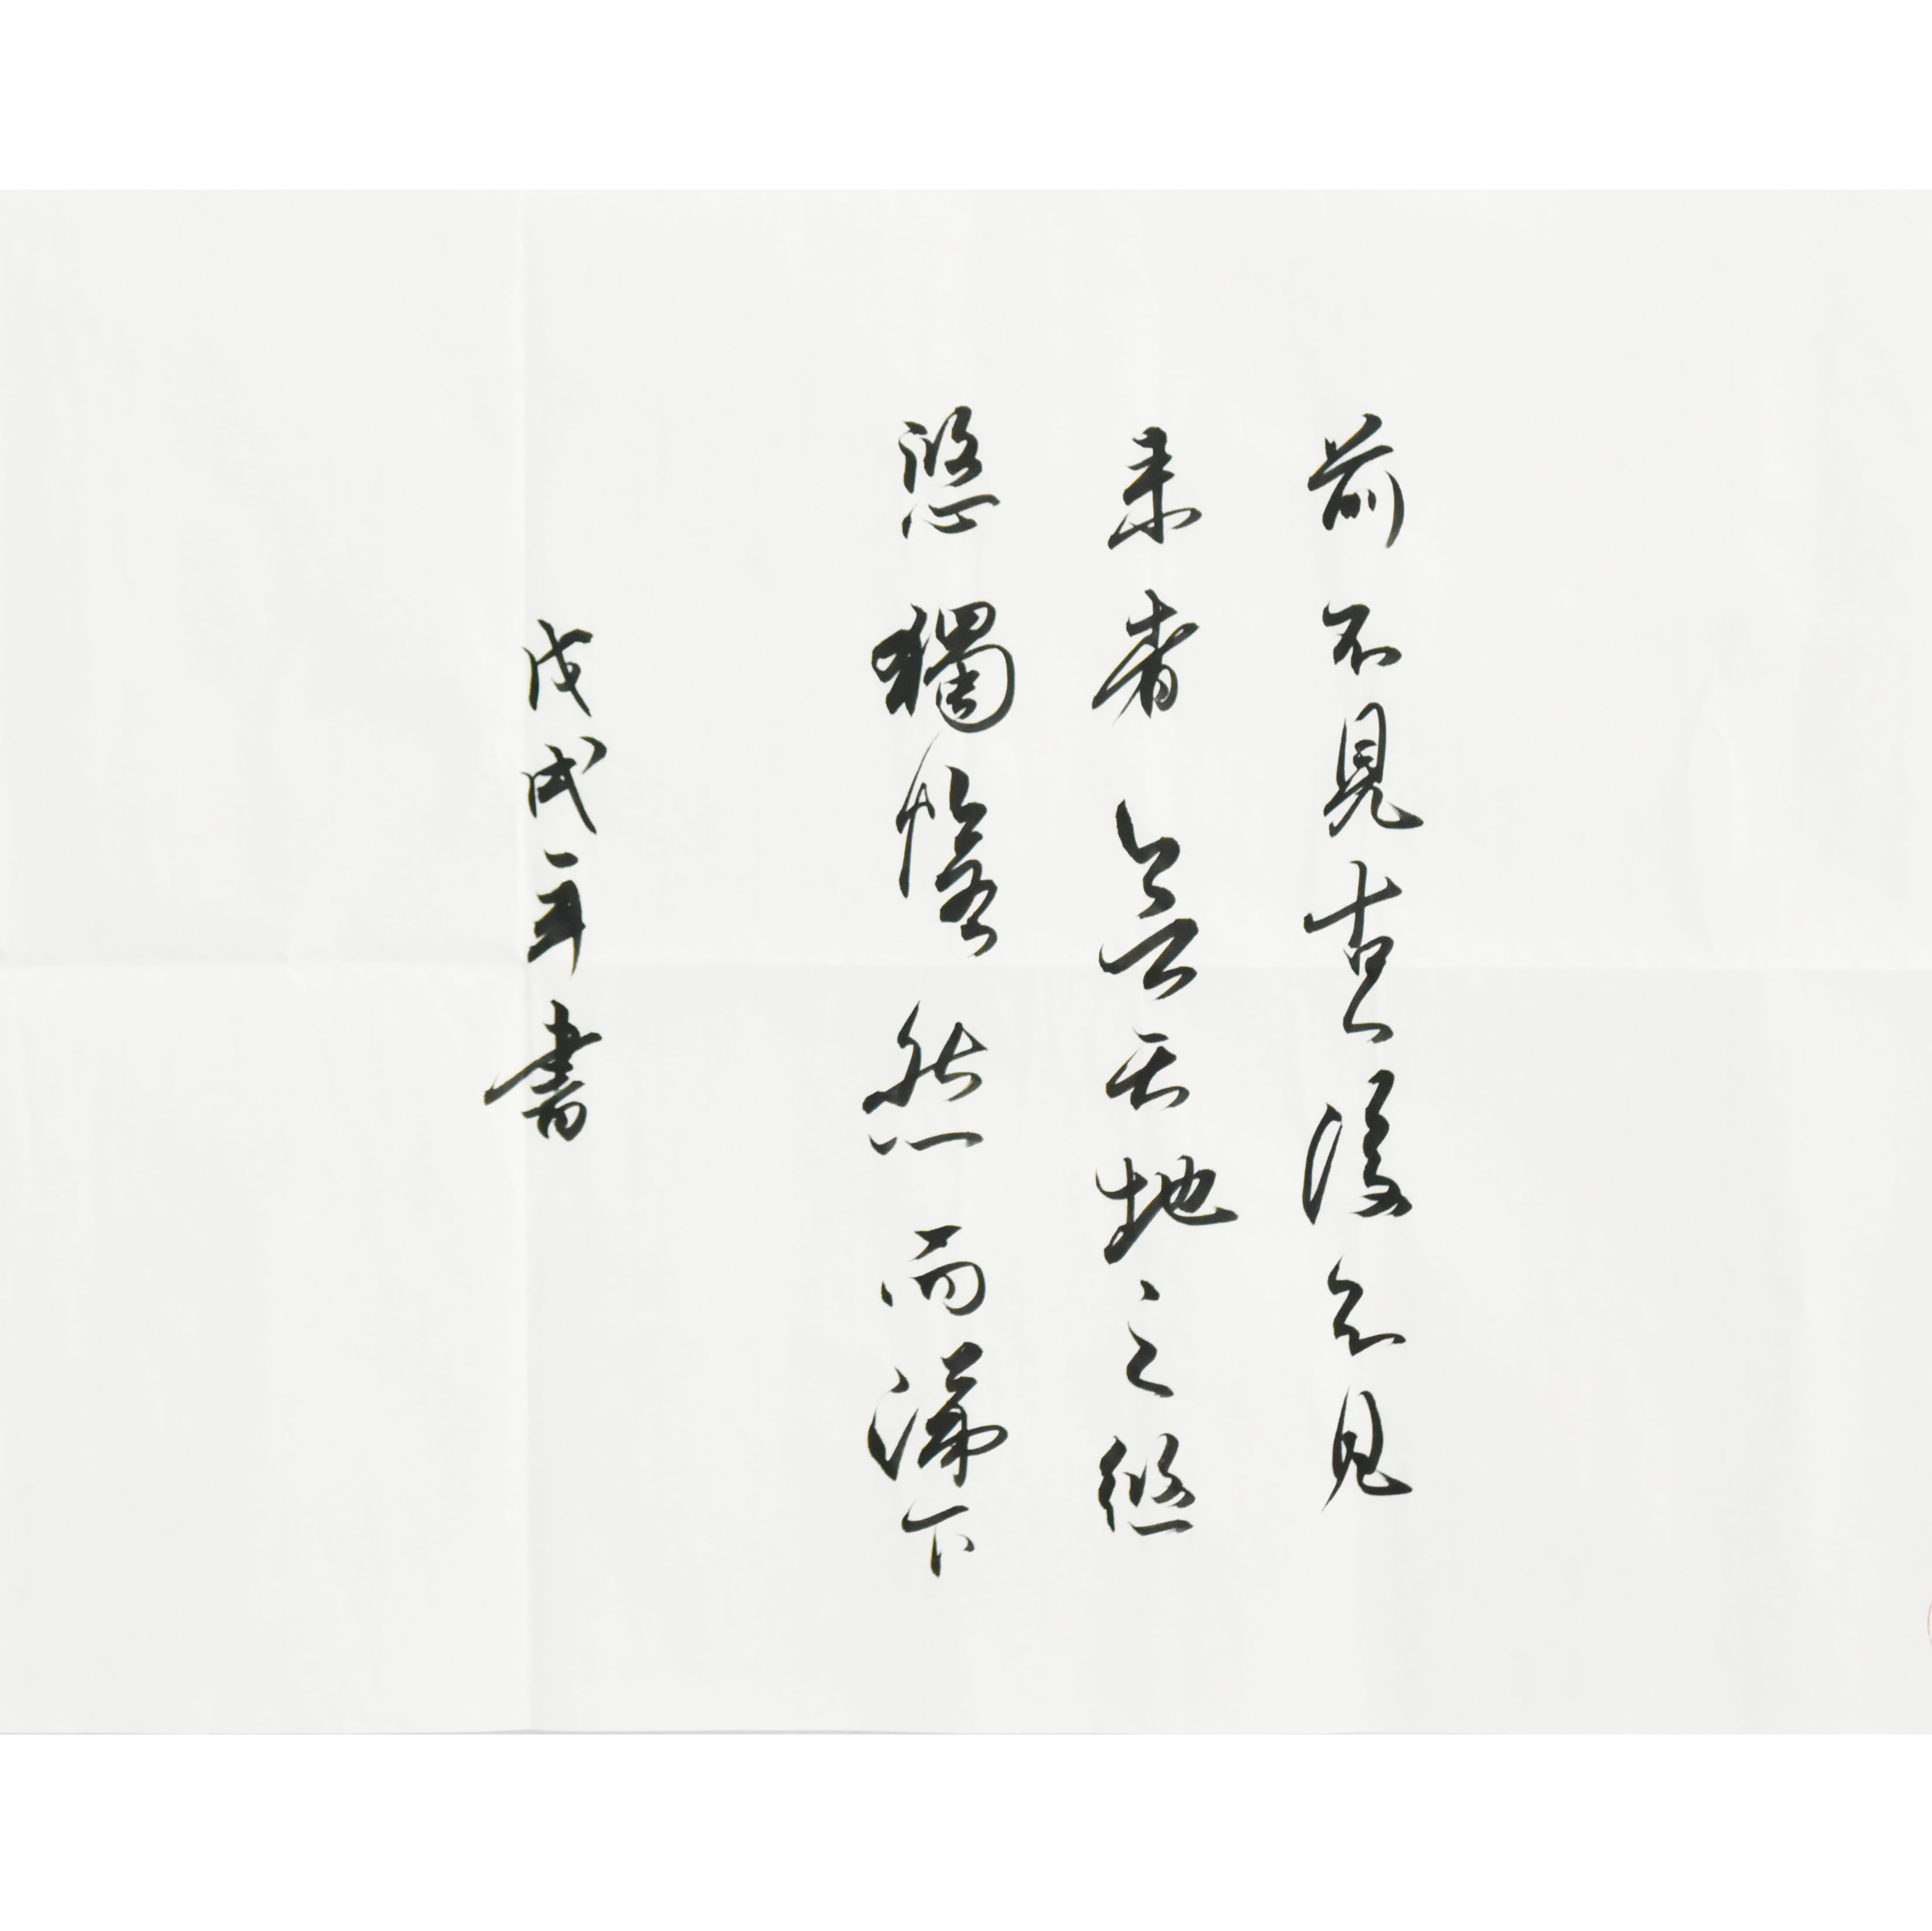 前不見古人後不見
来者念天地之悠
悠獨愴然而涕下
戊戌年書